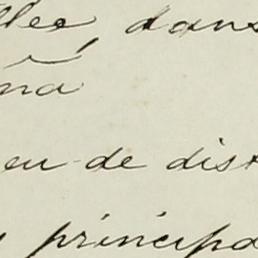 llée, dans
ña
eu de dist
principa